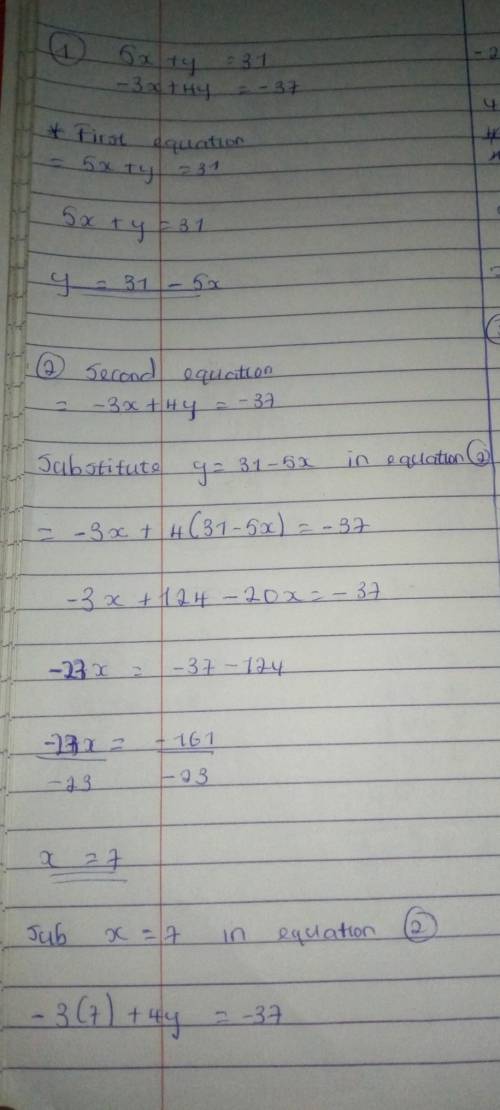 ① 5x + y = 31
-3x + 4y = -37
* First equation
= 5x + y = 31
5x + y = 31
y = 31 - 5x
② Second equation
= -3x + 4y = -37
Substitute y = 31 - 5x in equation ②
= -3x + 4(31 - 5x) = -37
-3x + 124 - 20x = -37
-23x = -37 - 124
-23x = -161
-23 -23
x = 7
Sub x = 7 in equation ②
-3(7) + 4y = -37